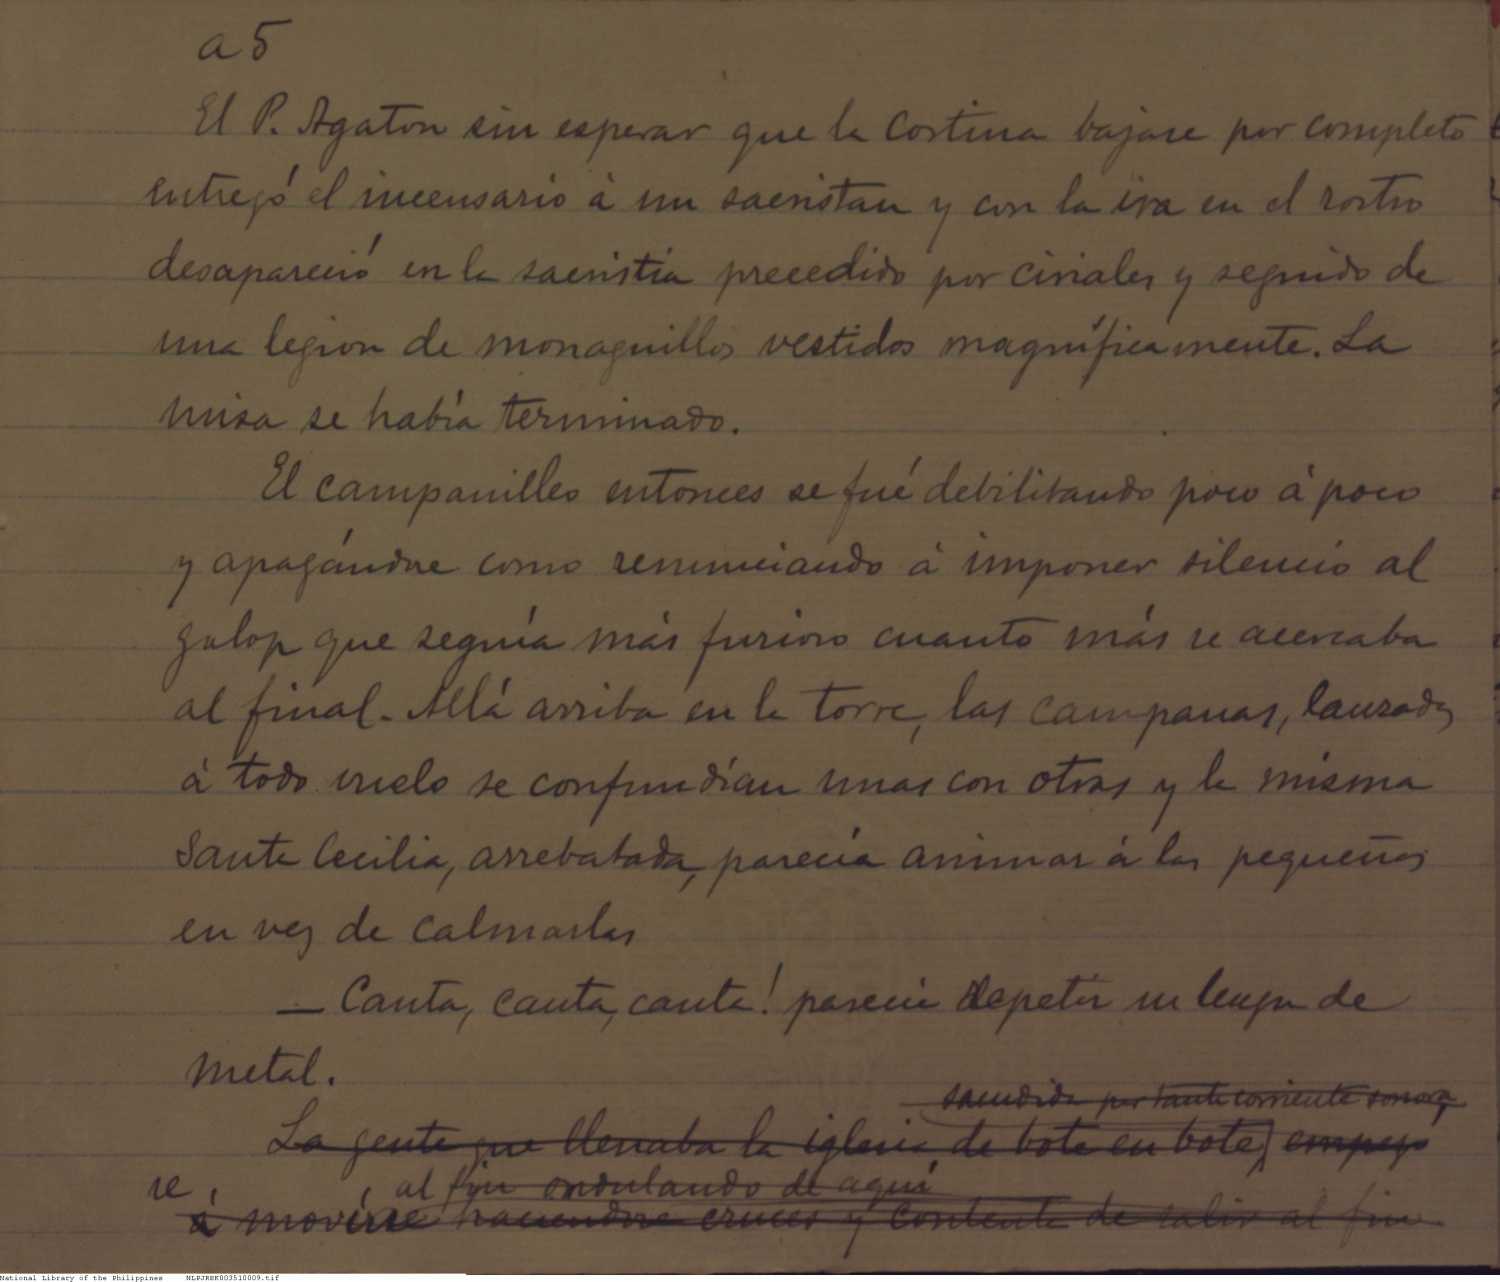 a 5
El P. Agaton sin esperar que la cortina bajase por completo
entregó el incensario á un sacristan y con la ira en el rostro
desapareció en la sacristía precedido por ciriales y seguido de
una legion de monaguillos vestidos magníficamente. La
misa se había terminado.
El campanilleo entonces se fué debilitando poco á poco
y apagándose como renunciando á imponer silencio al
galop que seguía más furioso cuanto más se acercaba
al final. Allá arriba en la torre, las campanas, lanzadas
á todo vuelo se confundían unas con otras y la misma
Santa Cecilia, arrebatada, parecía animar á las pequeñas
en vez de calmarlas
— Canta, canta, canta! parecía repetir su lengua de
metal.
sacudida por tanta corriente sonora,
La gente que llenaba la iglesia de bote en bote, empezo
se al fin ondulando de aquí
á moverse haciendose cruces y contenta de salir al fin
National Library of the Philippines NLPJRBK003510009.tif